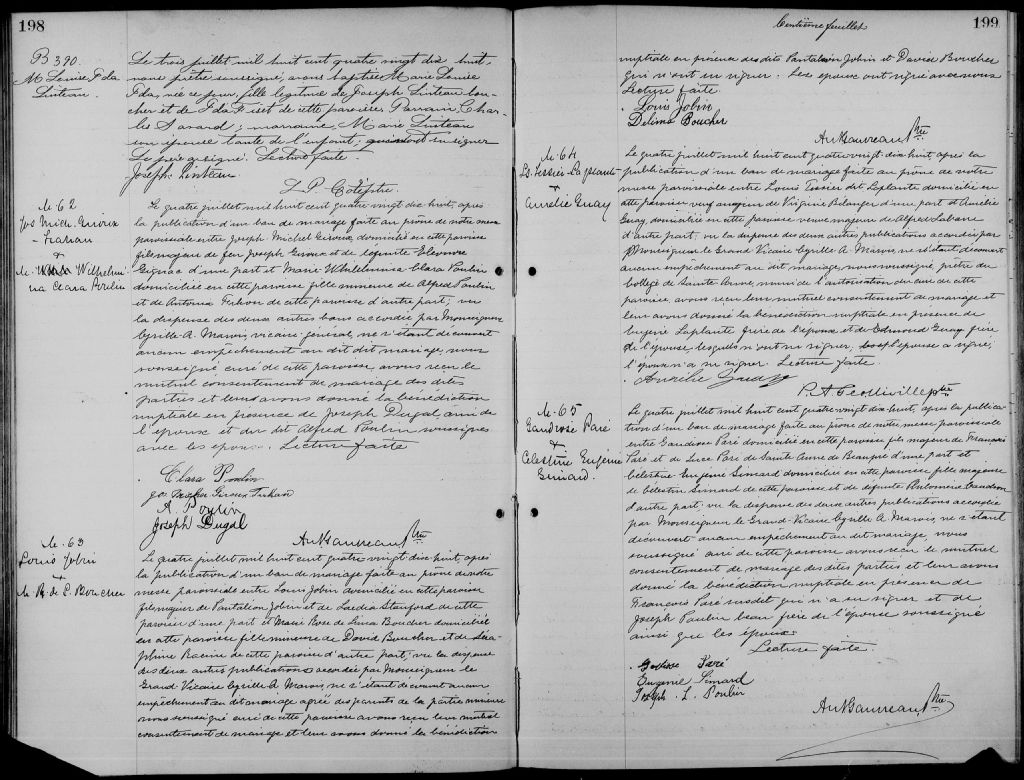 198
B 390.
M Louise Ida
Linteau.
Le trois juillet mil huit cent quatre vingt dix huit,
nous prêtre soussigné, avons baptisé Marie Louise
Ida, née ce jour, fille légitime de Joseph Linteau bou-
cher et de Ida de cette paroisse Parrain, Char-
les Savard; marraine, Marie Linteau
son épouse tante de l'enfant; qui ont su signer
Le père a signé. Lecture faite.
Joseph Linteau
J. P. Côté, ptre
M. 62
Jos Mich. Giroux
M. Wilhelmi
na Clara Poulin
Le quatre juillet mil huit cent quatre vingt dix huit, après
la publication d'un ban de mariage faite au prône de notre messe
paroissiale entre Joseph Michel Giroux, domicilié en cette paroisse
fils majeur de feu Joseph Giroux et de défunte Eléonore
Gignac d'une part et Marie Whilelmina Clara Poulin
domiciliée en cette paroisse fille mineure de Alfred Poulin
et de Antonia de cette paroisse d'autre part; vu
la dispense des deux autres bans accordée par Monseigneur
Cyrille A. Marois, vicaire général, ne s'étant découvert
aucun empêchement au dit dit mariage, nous
soussigné, curé de cette paroisse, avons reçu le
mutuel consentement de mariage des dites
parties et leur avons donné la bénédiction
nuptiale en présence de Joseph Dugal, ami de
l'époux et du dit Alfred Poulin soussignés
avec les époux. Lecture faite
Clara Poulin
A. Poulin
Joseph Dugal
Ptre
M. 63
Louis Jobin
+
M R. de L. Boucher
Le quatre juillet mil huit cent quatre vingt dix huit, après
la publication d'un ban de mariage faite au prône de notre
messe paroissiale entre Louis Jobin domicilié en cette paroisse
fils majeur de Pantaléon Jobin et de Stanford de cette
paroisse d'une part et Marie Rose de Lima Boucher domiciliée
en cette paroisse fille mineure de David Boucher et de Séra-
phine Racine de cette paroisse d'autre part; vu la dispense
des deux autres publications accordée par Monseigneur le
Grand Vicaire Cyrille A. Marois, ne s'étant découvert aucun
empêchement au dit mariage agréé des parents de la partie mineure
nous soussigné curé de cette paroisse avons reçu leur mutuel
consentement de mariage et leur avons donné la bénédiction
Centième feuillet
199
nuptiale en présence des dits Pantaléon Jobin et David Boucher
qui n'ont su signer. Les époux ont signé avec nous
Lecture faite
Louis Jobin
Délima Boucher
Ptre
M. 64
Ls. Tessier Laplante
+
Aurélie Guay
Le quatre juillet mil huit cent quatre vingt dix huit, après la
publication d'un ban de mariage faite au prône de notre
messe paroissiale entre Louis Tessier dit Laplante domicilié en
cette paroisse veuf majeur de Virginie Bélanger d'une part et Aurélie
Guay, domiciliée en cette paroisse veuve majeure de Alfred
d'autre part; vu la dispense des deux autres publications accordée par
Monseigneur le Grand Vicaire Cyrille A. Marois, ne s'étant découvert
aucun empêchement au dit mariage, nous soussigné, prêtre du
Collège de Sainte Anne, muni de l'autorisation du curé de cette
paroisse, avons reçu leur mutuel consentement de mariage et
leur avons donné la bénédiction nuptiale en présence de
Eugène Laplante frère de l'époux et de Edmond Guay frère
de l'épouse, lesquels n'ont su signer. l'épouse a signé,
l'époux n'a su signer. Lecture faite.
Aurélie Guay
ptre
M. 65
Gaudiose Paré
+
Célestine Eugénie
Simard.
Le quatre juillet mil huit cent quatre vingt dix huit, après la publica-
tion d'un ban de mariage faite au prône de notre messe paroissiale
entre Gaudiose Paré domicilié en cette paroisse fils majeur de François
Paré et de Luce Paré de Sainte Anne de Beaupré d'une part et
Célestine Eugénie Simard domiciliée en cette paroisse fille majeure
de Célestin Simard de cette paroisse et de défunte Philomène
d'autre part; vu la dispense des deux autres publications accordée
par Monseigneur le Grand Vicaire Cyrille A. Marois, ne s'étant
découvert aucun empêchement au dit mariage, nous
soussigné curé de cette paroisse avons reçu le mutuel
consentement de mariage des dites parties et leur avons
donné la bénédiction nuptiale en présence de
François Paré susdit qui n'a su signer et de
Joseph Poulin beau frère de l'épouse soussigné
ainsi que les époux.
Lecture faite
Paré
Eugénie Simard
Joseph. L. Poulin
Ptre